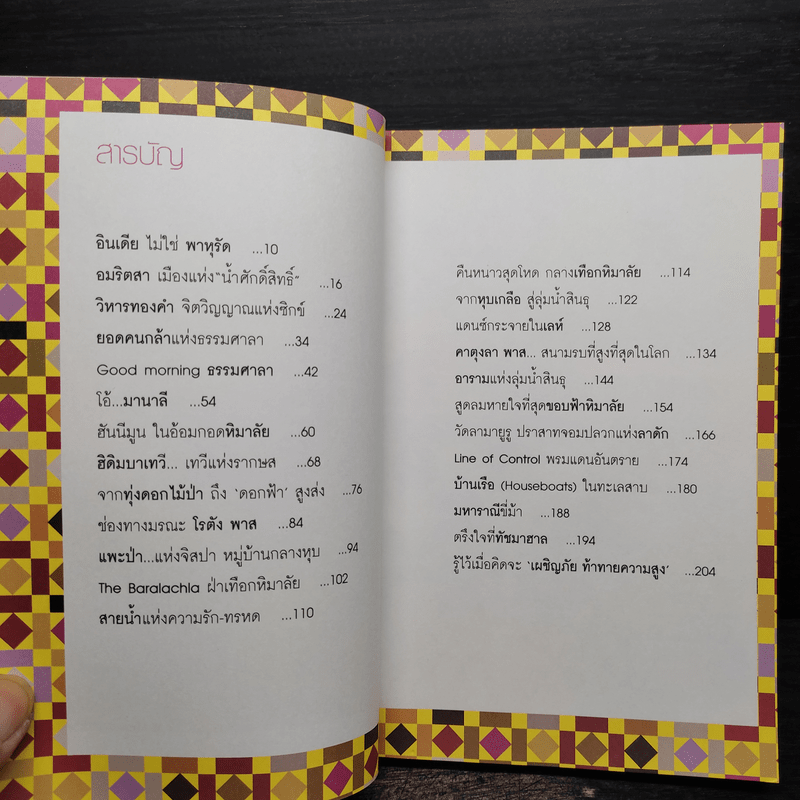 สารบัญ
อินเดีย ไม่ใช่ พาหุรัด ...10
อมริตสา เมืองแห่ง"น้ำศักดิ์สิทธิ์" ...16
วิหารทองคำ จิตวิญญาณแห่งซิกข์ ...24
ยอดคนกล้าแห่งธรรมศาลา ...34
Good morning ธรรมศาลา ...42
โอ้...มานาลี ...54
ฮันนีมูน ในอ้อมกอดหิมาลัย ...60
ฮิดิมบาเทวี... เทวีแห่งรากษส ...68
จากทุ่งดอกไม้ป่า ถึง 'ดอกฟ้า' สูงส่ง ...76
ช่องทางมรณะ โรตัง พาส ...84
แพะป่า...แห่งจิสปา หมู่บ้านกลางหุบ ...94
The Baralachla ฝ่าเทือกหิมาลัย ...102
สายน้ำแห่งความรัก-ทรหด ...110
คืนหนาวสุดโหด กลางเทือกหิมาลัย ...114
จากหุบเกลือ สู่ลุ่มน้ำสินธุ ...122
แดนซ์กระจายในเลห์ ...128
คาตุงลา พาส... สนามรบที่สูงที่สุดในโลก ...134
อารามแห่งลุ่มน้ำสินธุ ...144
สูดลมหายใจที่สุดขอบฟ้าหิมาลัย ...154
วัดลามายูรู ปราสาทจอมปลวกแห่งลาดัก ...166
Line of Control พรมแดนอันตราย ...174
บ้านเรือ (Houseboats) ในทะเลสาบ ...180
มหาราณีขี่ม้า ...188
ตรึงใจที่ทัชมาฮาล ...194
รู้ไว้เมื่อคิดจะ 'เผชิญภัย ท้าทายความสูง' ...204